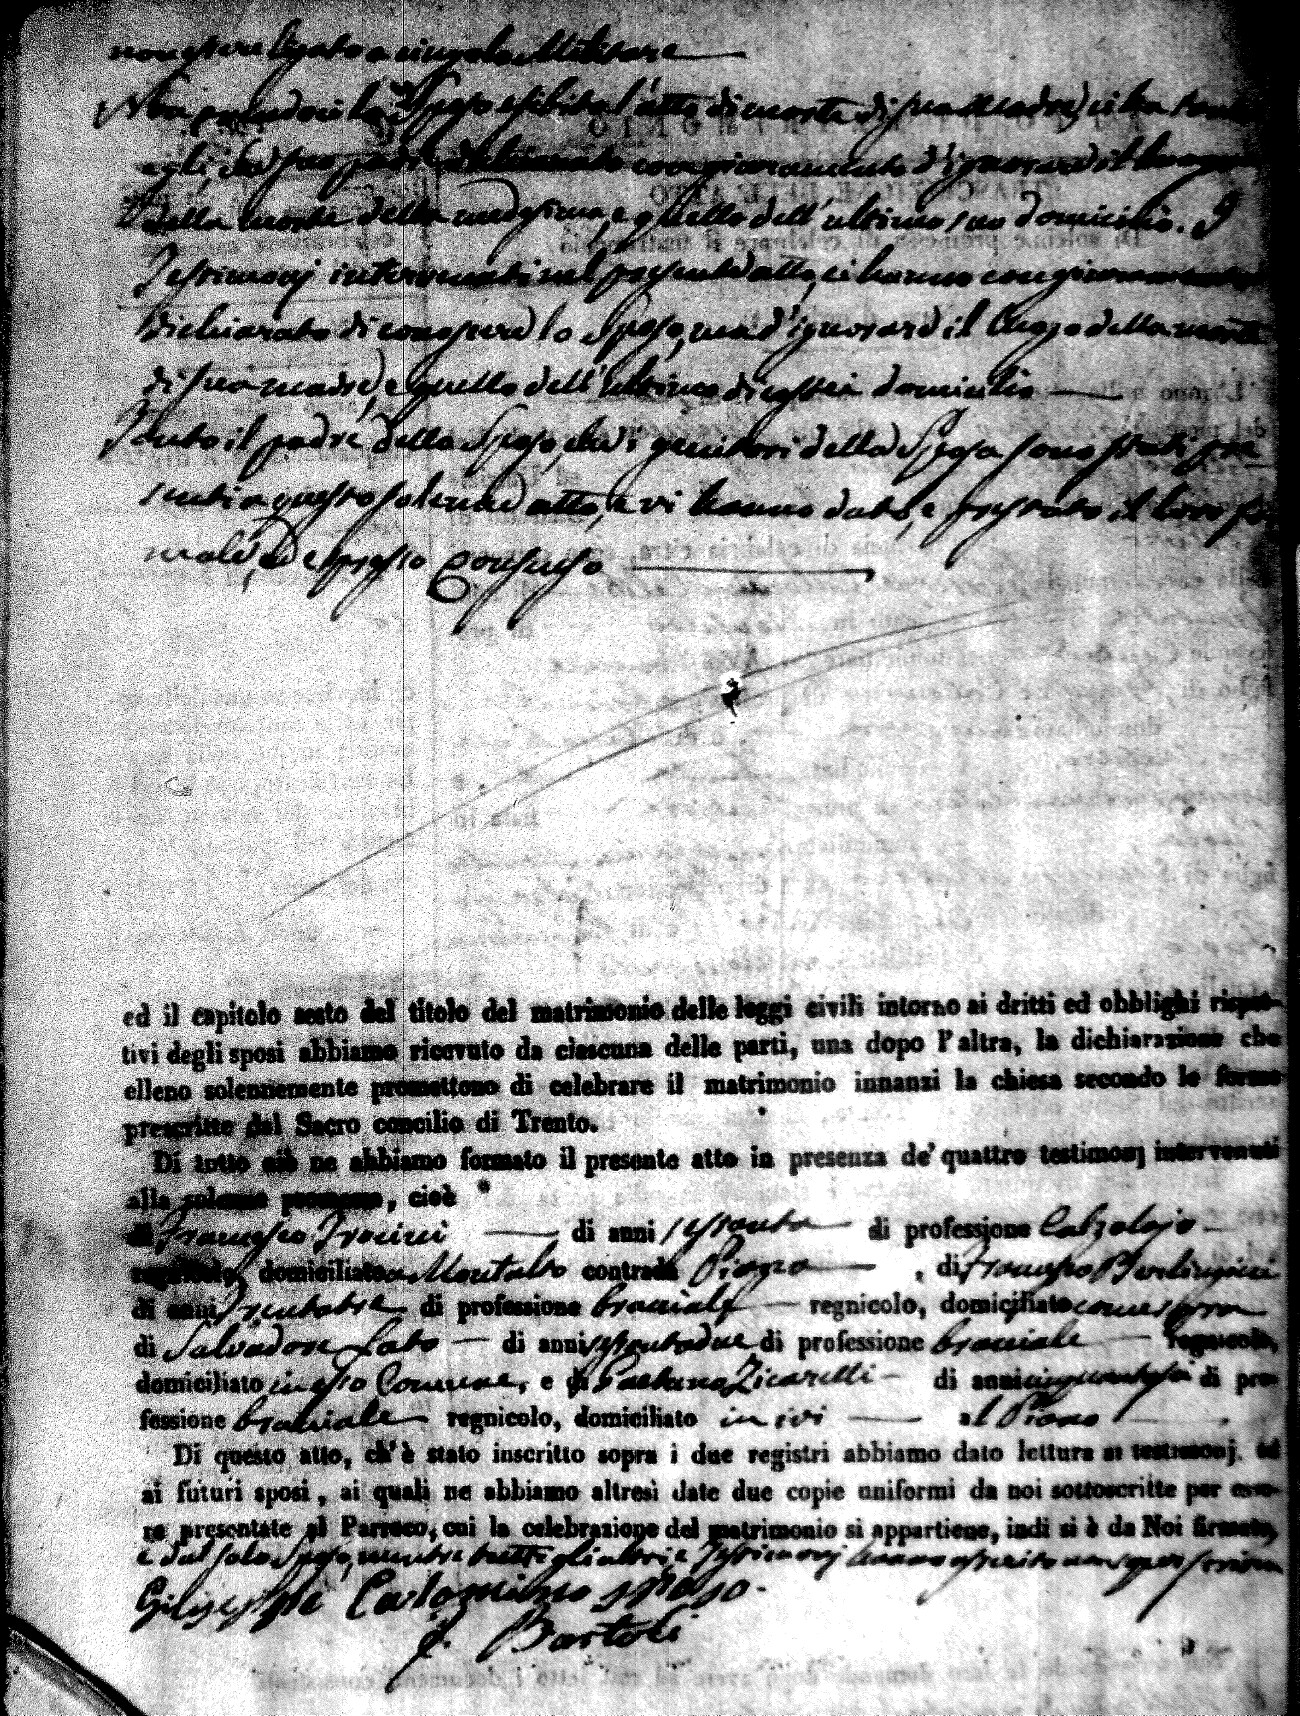 non essere ligato a cingolo Militare
Non potendosi lo Sposo esibire l'atto di morte di sua madre, ci ha
egli, ed suo padre dichiarato con giuramento d'ignorare il luogo
della morte della medesima, e quello dell'ultimo suo domicilio. I
Testimonj intervenuti nel presente atto, ci hanno con giuramento
dichiarato di conoscere lo Sposo, ma d'ignorare il luogo della morte
di sua madre, e quello dell'ultimo di costei domicilio
Tanto il padre dello Sposo, che i genitori della Sposa sono stati pre
senti a questo solenne atto, e vi hanno dato, e prestato il loro for
male, ed espresso Consenso
ed il capitolo sesto del titolo del matrimonio delle leggi civili intorno ai dritti ed obblighi rispet-
tivi degli sposi abbiamo ricevuto da ciascuna delle parti, una dopo l'altra, la dichiarazione che
elleno solennemente promettono di celebrare il matrimonio innanzi la chiesa secondo le forme
prescritte dal Sacro concilio di Trento.
Di tutto ciò ne abbiamo formato il presente atto in presenza de' quattro testimonj intervenuti
alla solenne promessa, cioè
di Francesco di anni sessanta di professione Calzolajo
regnicolo, domiciliato a Montalto contrada Piano, di Francesco
di anni trentatre di professione bracciale regnicolo, domiciliato come sopra
di Salvadore Lato di anni di professione bracciale regnicolo,
domiciliato in esso Comune, e di Gaetano Zicarelli di anni cinquantasei di pro-
fessione bracciale regnicolo, domiciliato in ivi al Piano
Di questo atto, ch'è stato inscritto sopra i due registri abbiamo dato lettura ai testimonj. ed
ai futuri sposi, ai quali ne abbiamo altresì date due copie uniformi da noi sottoscritte per esse-
re presentate al Parroco, cui la celebrazione del matrimonio si appartiene, indi si è da Noi firmato,
e dal solo Sposo, mentre tutti gli altri e Testimonj hanno asserito non saper scrivere
Giuseppe Carlomino sposo.
Bartoli